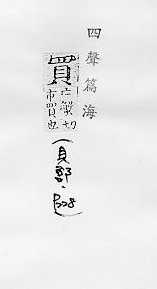 四聲篇海
買
亡蟹切
市買也
(貝部.